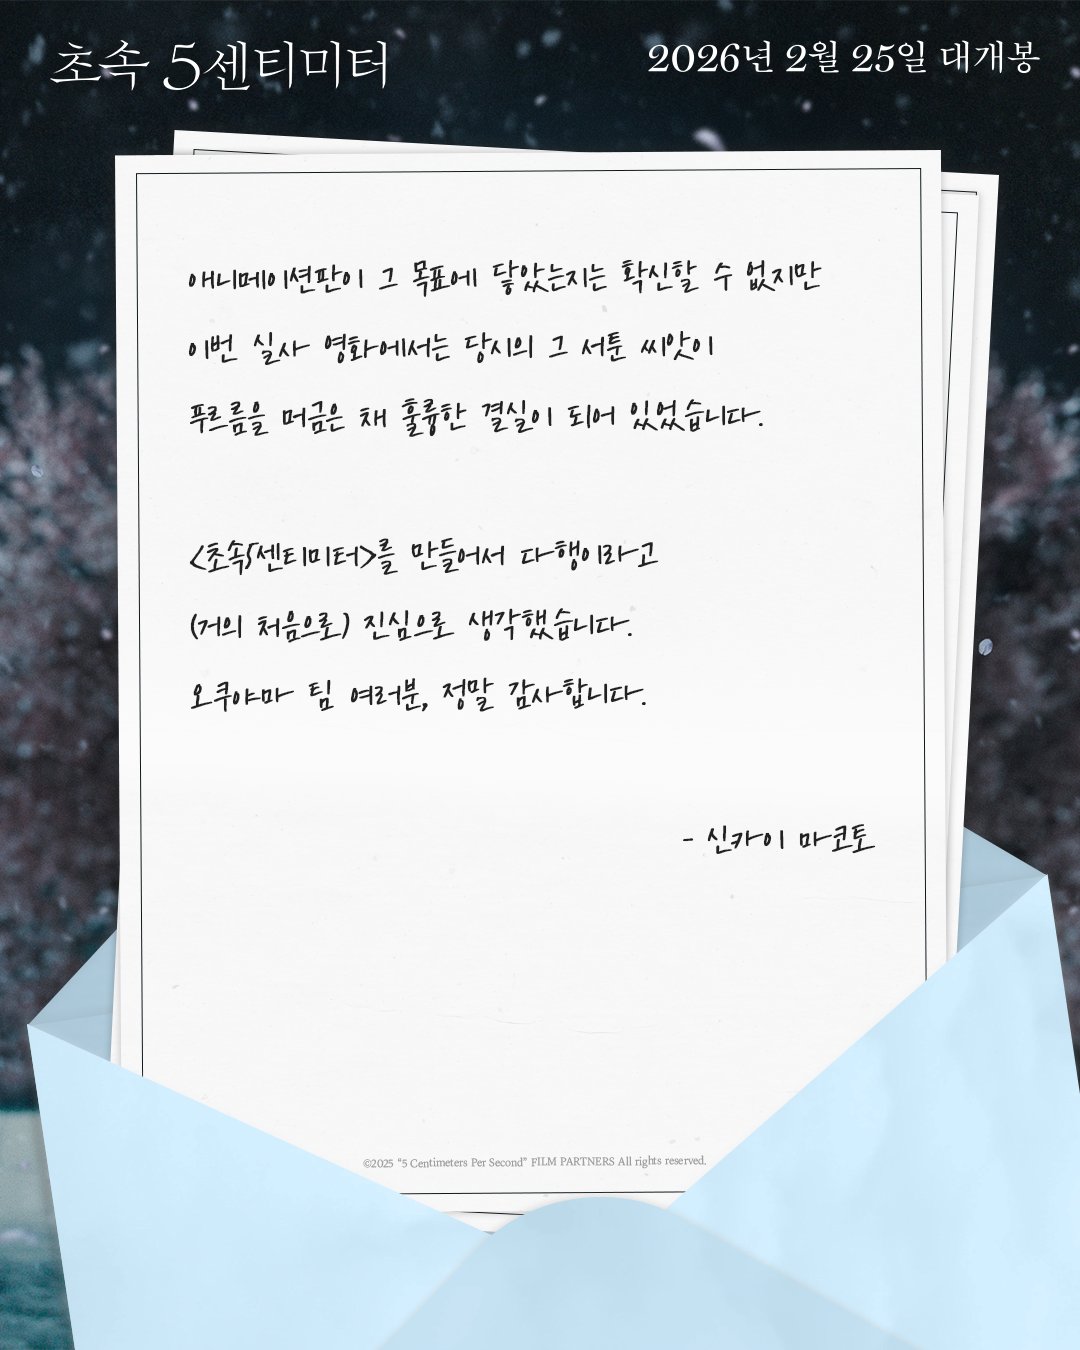 초속 5센티미터
2026년 2월 25일 대개봉
애니메이션판이 그 목표에 닿았는지는 확신할 수 없지만
이번 실사 영화에서는 당시의 그 서툰 씨앗이
푸르름을 머금은 채 훌륭한 결실이 되어 있었습니다.
<초속5센티미터>를 만들어서 다행이라고
(거의 처음으로) 진심으로 생각했습니다.
오쿠야마 팀 여러분, 정말 감사합니다.
- 신카이 마코토
©2025 “5 Centimeters Per Second” FILM PARTNERS All rights reserved.